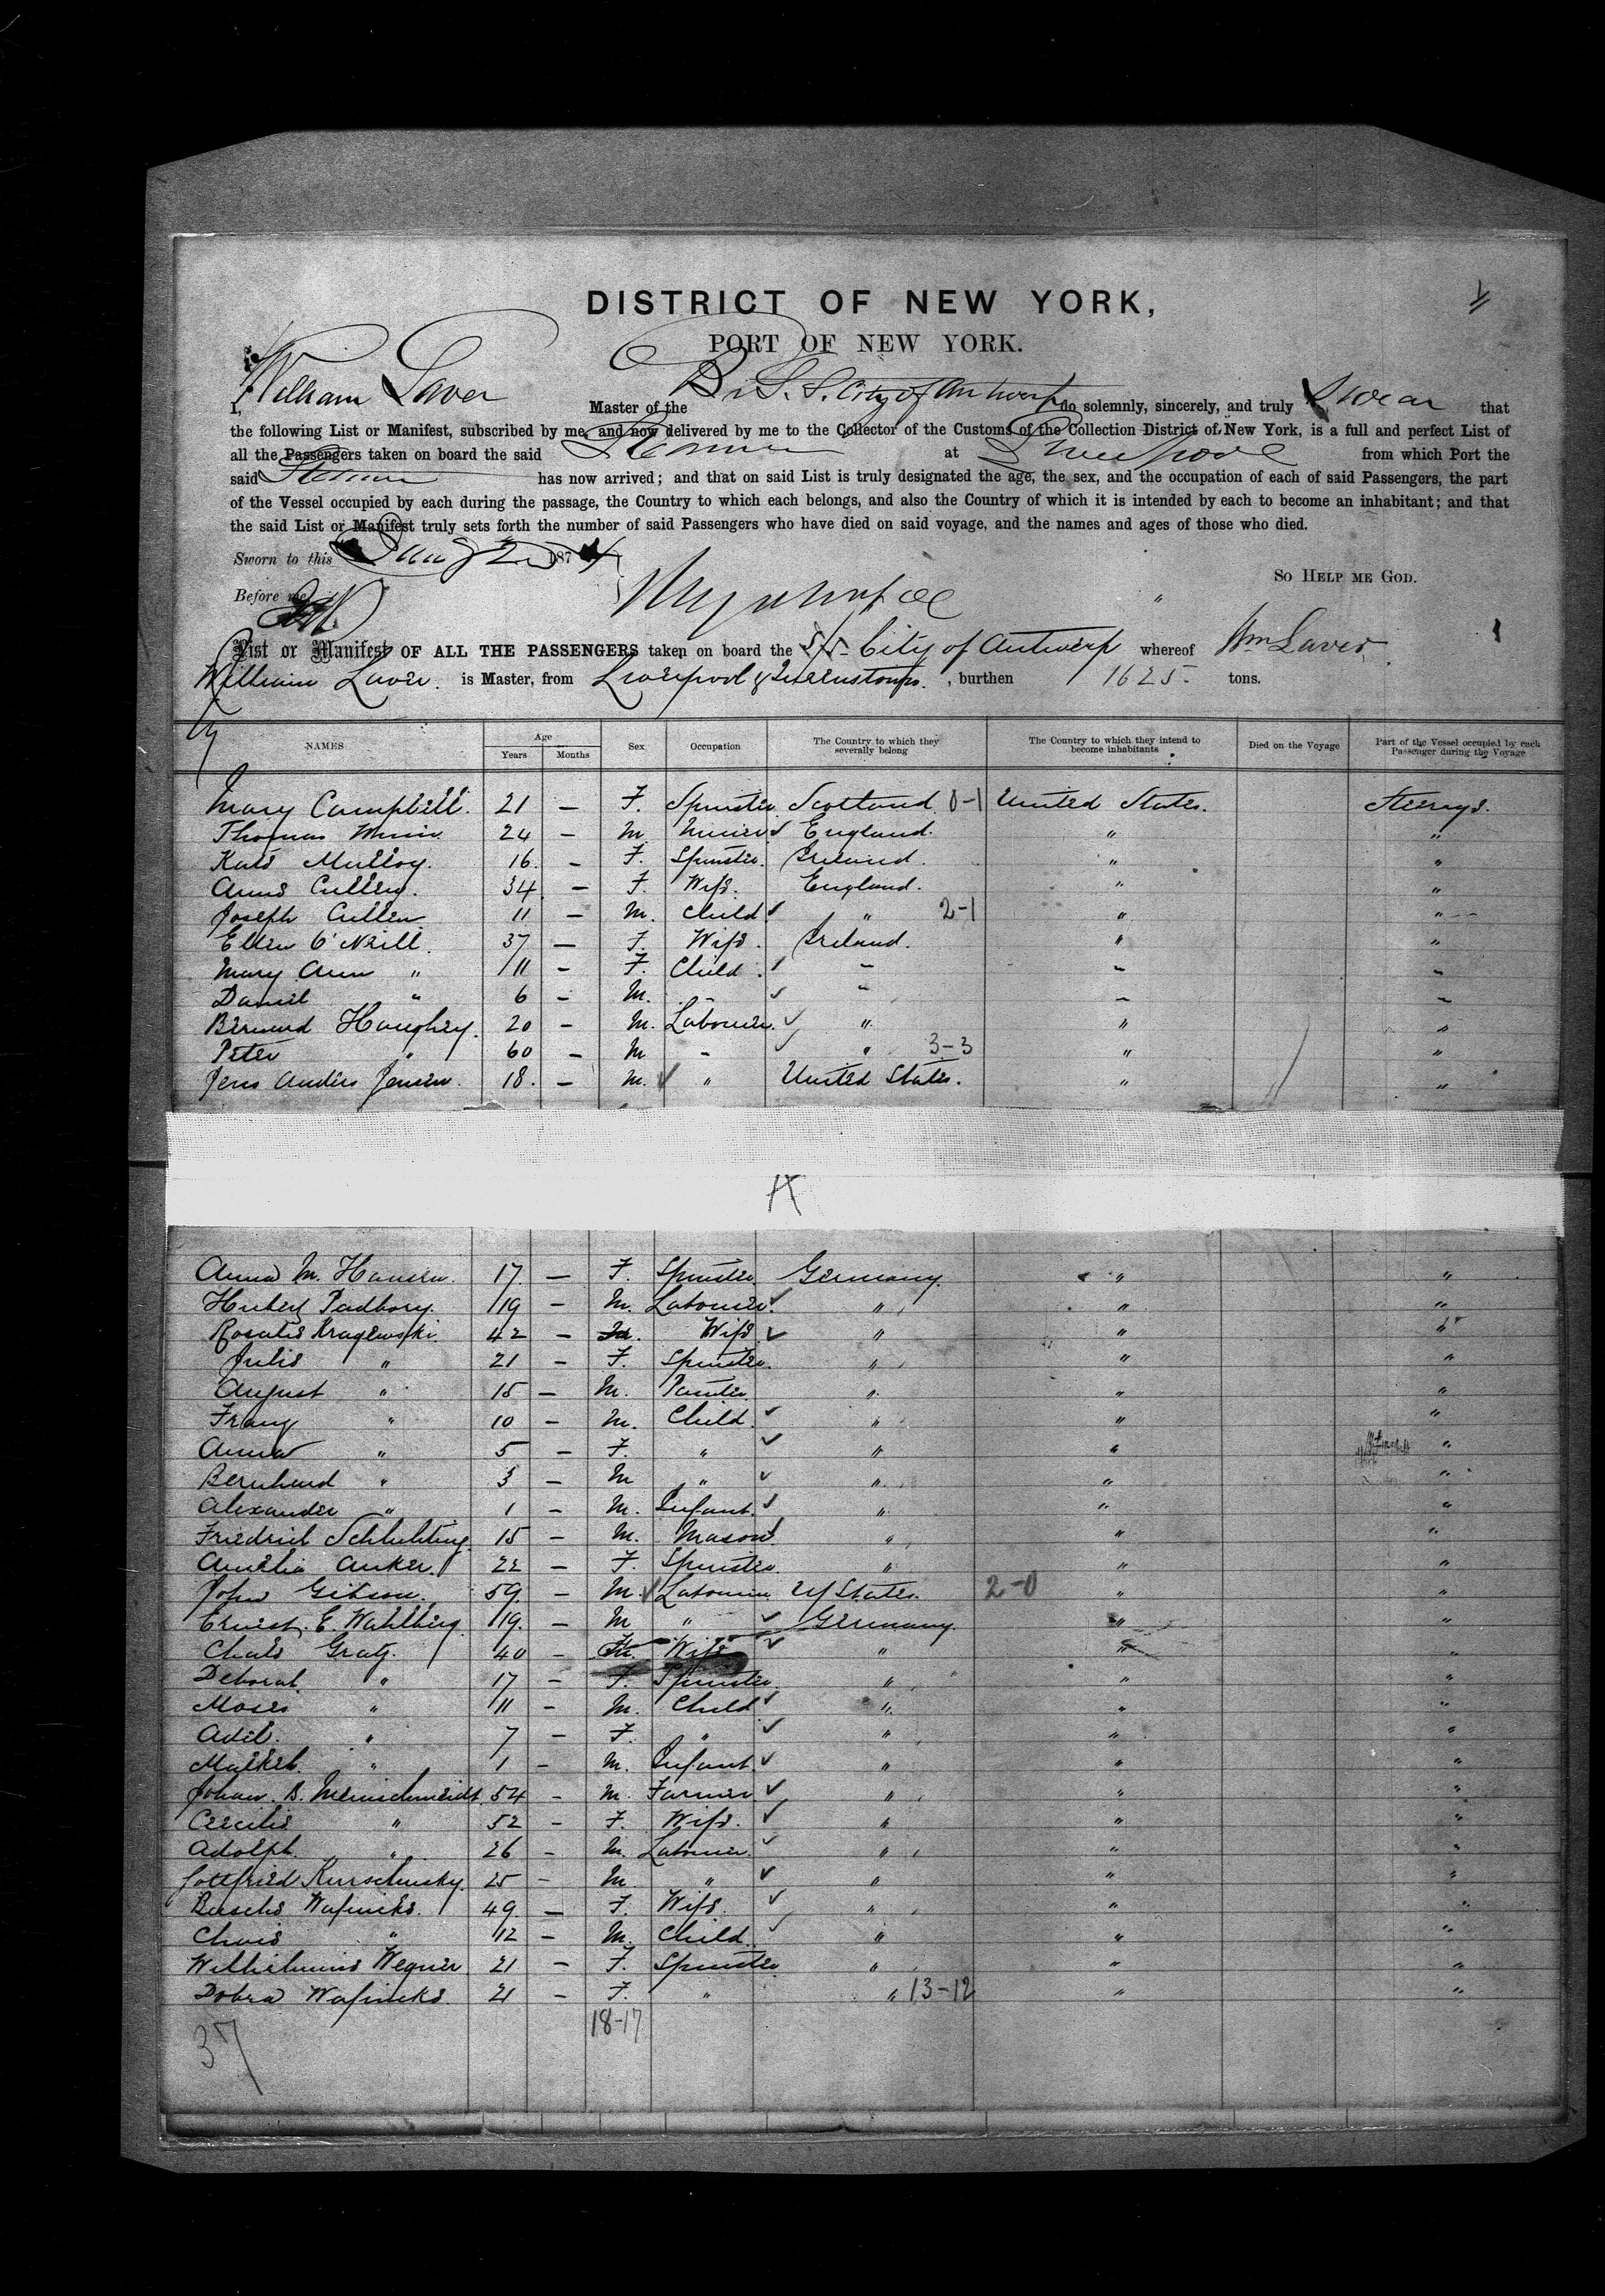 DISTRICT OF NEW YORK,
PORT OF NEW YORK.
I, William Laver Master of the Br S. S. City of Antwerp do solemnly, sincerely, and truly Swear that
the following List or Manifest, subscribed by me, and now delivered by me to the Collector of the Customs of the Collection District of New York, is a full and perfect List of
all the Passengers taken on board the said Steamer at Liverpool from which Port the
said Steamer has now arrived; and that on said List is truly designated the age, the sex, and the occupation of each of said Passengers, the part
of the Vessel occupied by each during the passage, the Country to which each belongs, and also the Country of which it is intended by each to become an inhabitant; and that
the said List or Manifest truly sets forth the number of said Passengers who have died on said voyage, and the names and ages of those who died.
Sworn to this 1874
So Help me God.
Before me
List or Manifest OF ALL THE PASSENGERS taken on board the S/S- City of Antwerp whereof Wm Laver
William Laver. is Master, from Liverpool & Queenstown. , burthen 1625- tons.
NAMES Age Years Months Sex Occupation The Country to which they severally belong The Country to which they intend to become inhabitants Died on the Voyage Part of the Vessel occupied by each Passenger during the Voyage
Mary Campbell. 21 – F. Spinster Scotland 0-1 United States. Steerage.
Thomas 24 – M Miner England. " "
Kate Mulloy. 16. – F. Spinster. Ireland. " "
Anne Cullen. 34. – F. Wife. England. " "
Joseph Cullen 11 – M. Child " 2-1 " "
Ellen O'Neill. 37 – F. Wife. Ireland. " "
Mary Ann " 11 – F. Child " " "
Daniel " 6 – M. " " " "
Bernard Haughey. 20 – M. Labourer. " " "
Peter " 60 – M " " 3-3 " "
Jens Anders Jensen. 18. – M. " United States. " "
A
Anna M. Hansen. 17 – F. Spinster Germany " "
Hubert Padbory. 19 – M. Labourer. " " "
Rosalie Kragewski. 42 – Wife " " "
Julie " 21 – F. Spinster. " " "
August " 15 – M. Painter " " "
Franz " 10 – M. Child. " " "
Anna " 5 – F. " " " "
Bernhard " 3 – M " " " "
Alexander " 1 – M. Infant. " " "
Friedrich Schlichting. 15 – M. Mason " " "
Amelia Anker. 22 – F. Spinster " " "
John Gibson. 59. – M. Labourer U States. 2-0 " "
Ernest. E. Wahlberg. 19. – M " Germany. " "
Gratz. 40 – F. Wife " " "
Deborah. " 17 – F. Spinster. " " "
Moses " 11 – M. Child " " "
Adel. " 7 – F. " " " "
" 1 – M. Infant. " " "
Johan. B. Meinschmeidt. 54 – M. Farmer " " "
Cecilie " 52 – F. Wife. " " "
Adolph. " 26 – M. Labourer. " " "
Gottfried Kurschinsky. 25 – M. " " " "
49. – F. Wife. " " "
" 12 – M. Child. " " "
Wilhelmine Wegner. 21 – F. Spinster " " "
Dobra 21 – F. " " 13-12 " "
18-17
37